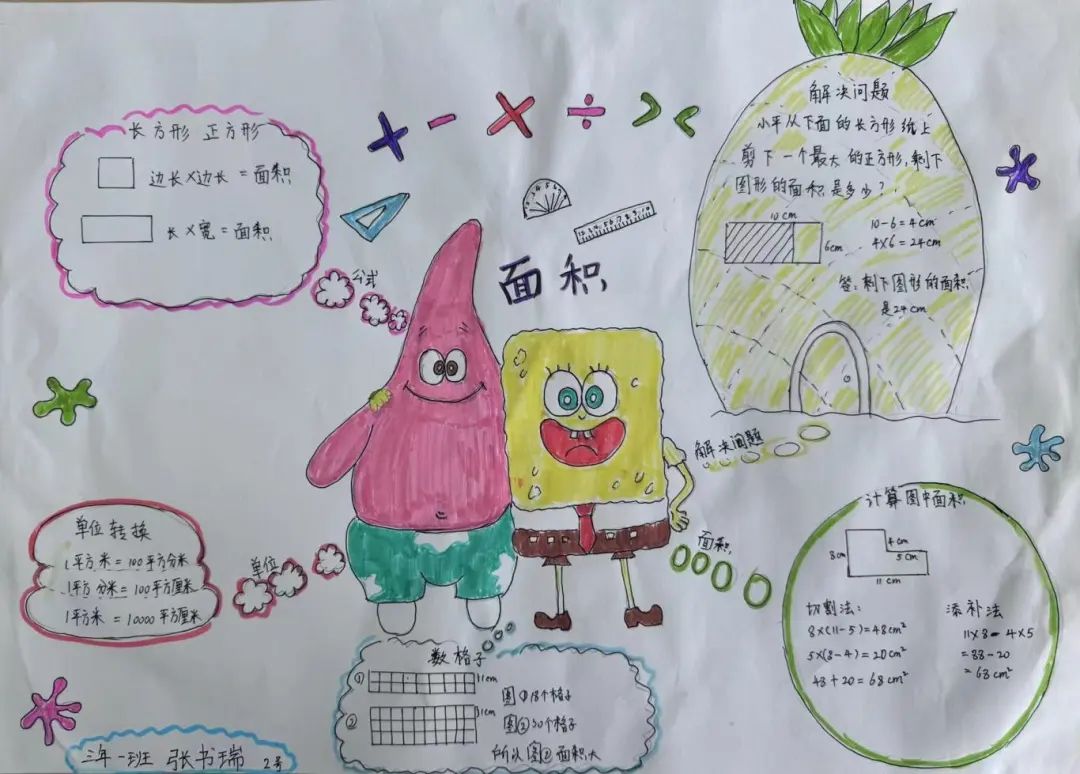 长方形 正方形
边长×边长=面积
长×宽=面积
公式
+ - × ÷ > <
面积
解决问题
小平从下面的长方形纸上
剪下一个最大的正方形,剩下
图形的面积是多少?
10cm
6cm
10-6=4cm
4×6=24cm
答:剩下图形的面积
是24cm
解决问题
单位转换
1平方米=100平方分米
1平方分米=100平方厘米
1平方米=10000平方厘米
单位
面积
计算图中面积
8cm
4cm
5cm
11cm
切割法:
8×(11-5)=48cm²
5×(8-4)=20cm²
48+20=68cm²
添补法
11×8-4×5
=88-20
=68cm²
数格子
①
1cm
图①18个格子
②
1cm
图②30个格子
所以图②面积大
三年一班 张书瑞 2号